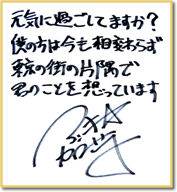 元気に過ごしてますか？
僕の方は今も相変わらず
東京の街の片隅で
君のことを想っています